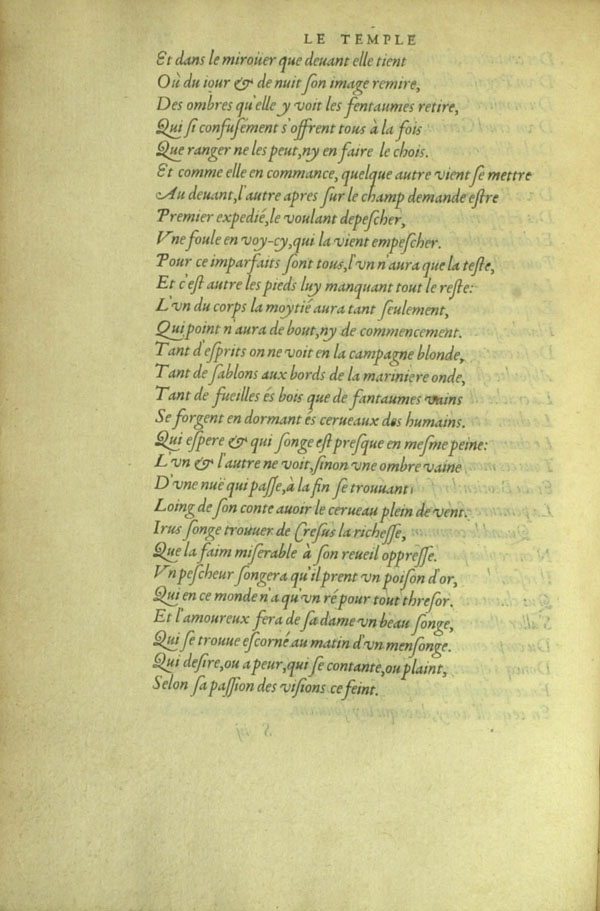 LE TEMPLE
Et dans le miroüer que deuant elle tient
Où du iour & de nuit ſon image remire,
Des ombres qu'elle y voit les fentaumes retire,
Qui ſi confuſément s'offrent tous à la fois
Que ranger ne les peut, ny en faire le chois.
Et comme elle en commance, quelque autre vient ſe mettre
Au deuant, l'autre apres ſur le champ demande eſtre
Premier expedié, le voulant depeſcher,
Vne foule en voy-cy, qui la vient empeſcher.
Pour ce imparfaits ſont tous, l'vn n'aura que la teſte,
Et c'eſt autre les pieds luy manquant tout le reſte:
L'vn du corps la moytié aura tant ſeulement,
Qui point n'aura de bout, ny de commencement.
Tant d'eſprits on ne voit en la campagne blonde,
Tant de ſablons aux bords de la mariniere onde,
Tant de fueilles és bois que de fantaumes vains
Se forgent en dormant és cerueaux des humains.
Qui eſpere & qui ſonge eſt preſque en meſme peine:
L'vn & l'autre ne voit, ſinon vne ombre vaine
D'vne nuë qui paſſe, à la fin ſe trouuant
Loing de ſon conte auoir le cerueau plein de vent.
Irus ſonge trouuer de Creſus la richeſſe,
Que la faim miſerable à ſon reueil oppreſſe.
Vn peſcheur ſongera qu'il prent vn poiſon d'or,
Qui en ce monde n'a qu'vn ré pour tout threſor.
Et l'amoureux fera de ſa dame vn beau ſonge,
Qui ſe trouue eſcorné au matin d'vn menſonge.
Qui deſire, ou a peur, qui ſe contante, ou plaint,
Selon ſa paſſion des viſions ce feint.